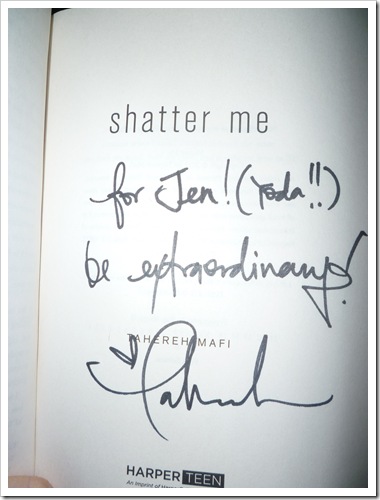 shatter me
for Jen! (Yoda!!)
be extraordinary!
TAHEREH MAFI
Tahereh
HARPER TEEN
An Imprint of Harper